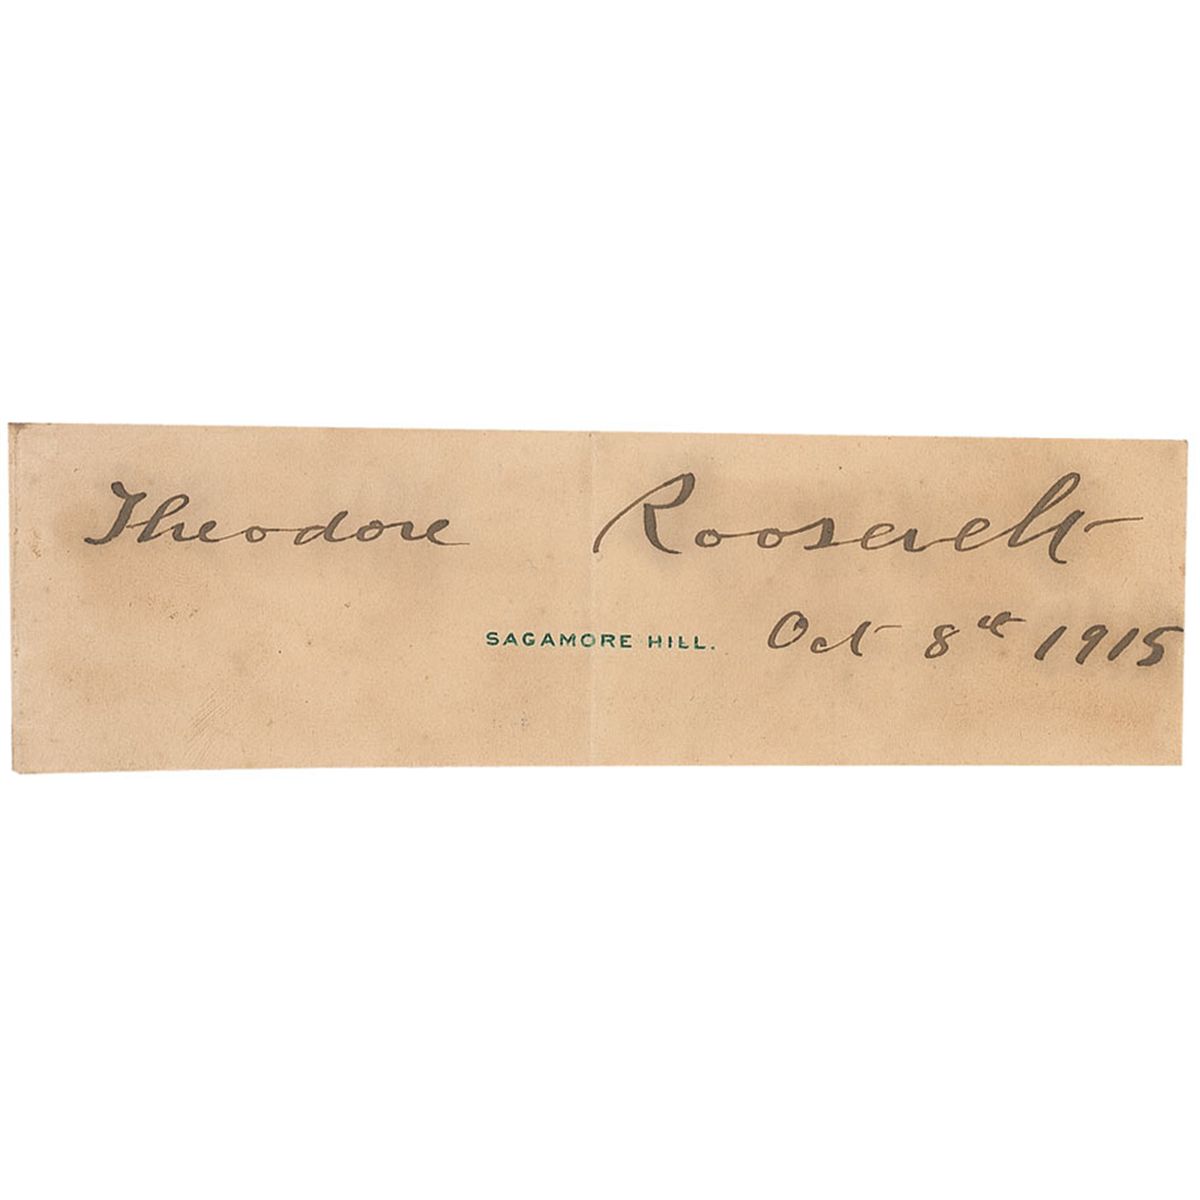 Theodore Roosevelt
SAGAMORE HILL. Oct 8th 1915